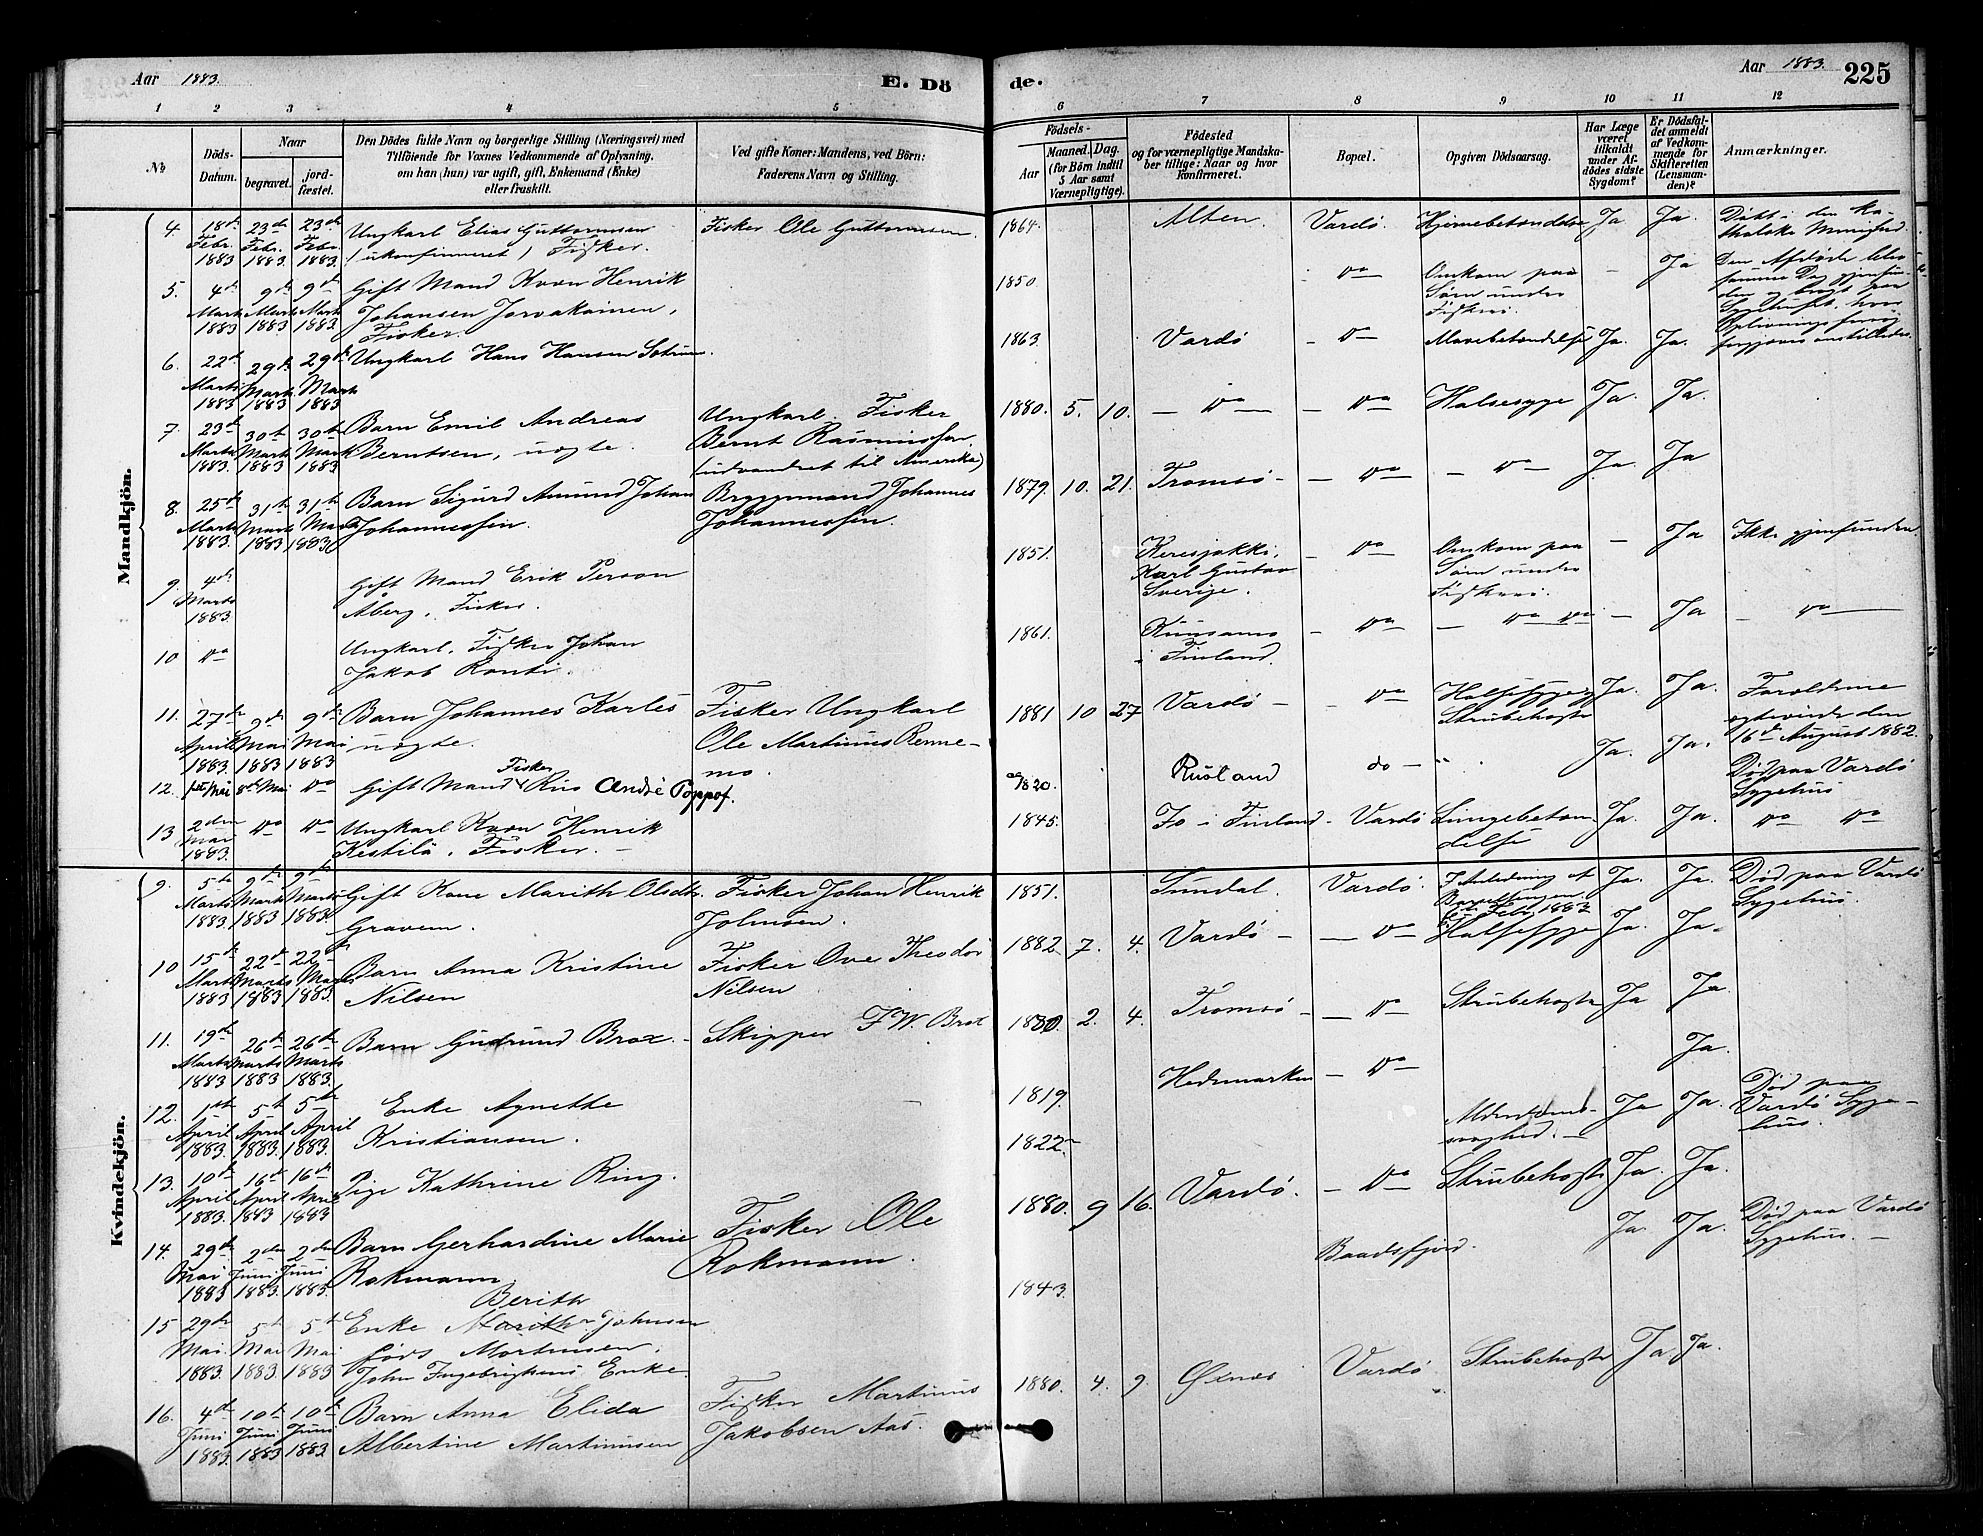 Aar 1883. E. Dö
de. Aar 1883. 225
1 2 3 4 5 6 7 8 9 10 11 12
No
Döds-
Datum.
Naar
begravet.
jord-
fæstet.
Den Dödes fulde Navn og borgerlige Stilling (Næringsvei) med
Tilföiende for Voxnes Vedkommende af Oplysning,
om han (hun) var ugift, gift, Enkemand (Enke)
eller fraskilt.
Ved gifte Koner: Mandens, ved Börn:
Faderens Navn og Stilling.
Födsels-
Aar
Maaned. Dag.
(for Börn indtil
5 Aar samt
Værnepligtige).
Födested
og for værnepligtige Mandska-
ber tillige: Naar og hvor
konfirmeret.
Bopæl.
Opgiven Dödsaarsag.
Har Læge
været
tilkaldt
under Af-
dödes sidste
Sygdom?
Er Dödsfal-
det anmeldt
af Vedkom-
mende for
Skifteretten
(Lensman-
den)?
Anmærkninger.
Mandkjön.
4. 18de Febr. 1883 23de Febr. 1883 23de Febr. 1883. Ungkarl Elias Guttormsen (ukonfirmeret) Fisker. Fisker Ole Guttormsen. 1864. Alten. Vardö. Hjernebetændelse Ja Ja. Døbt i den ka-
tholske Menighed.
5. 4de Marts 1883 9de Marts 1883 9de Marts 1883 Gift Mand Kvæn Henrik
Johansen Jorvakainen,
Fisker. 1850. do Omkom paa
Søen under
Fiskeri. - Ja Den Afdøde blev
samme Dag gjenfun-
den og bragt paa
Sygehuset, hvor
Oplivningsforsøg
forgjæves anstilledes.
6. 22de Marts 1883 29de Marts 1883 29de Marts 1883 Ungkarl Hans Hansen 1863. Vardö - do Mavebetændelse Ja. Ja.
7. 23de Marts 1883. 30te Marts 1883 30te Marts 1883 Barn Emil Andreas
Berntsen, uægte. Ungkarl. Fisker
Bernt Rasmussen
(udvandret til Amerika) 1880. 5. 10. - do - - do Halsesyge Ja. Ja.
8. 25de Marts 1883. 31te Marts 1883 31te Marts 1883 Barn Sigurd Amund Johan
Johannessen. Bryggemand Johannes
Johannessen. 1879. 10. 21. Tromsö - - do - do - Ja. Ja
9. 4de Marts 1883. Gift Mand Erik Person
Åberg, Fisker. 1851. Keresjokki,
Karl Gustav
Sverige. - do Omkom paa
Søen under
Fiskeri. - Ja Ikke gjenfunden
10 do Ungkarl, Fisker Johan
Jakob Ronti. 1861. Kuusamo
i Finland. - do - do do - Ja - do
11. 27de April 1883. 9de Mai 1883 9de Mai 1883 Barn Johannes Karles
uægte. Fisker Ungkarl
Ole Martinus Renne-
mo. 1881 10 27 Vardö - - do Halsesyge
Strubehoste Ja. Ja. Forældrene
ægteviede den
16de August 1882.
12. 1ste Mai 8de Mai do Gift Mand Fisker Rus André Poppof. 1820. Rusland do - " Ja. Ja. Död paa Vardö
Sygehus
13 2den Mai 1883. do do Ungkarl Kvæn Henrik
Kestilä. Fisker. - 1845. Io i Finland - Vardö Lungebetæn-
delse Ja. Ja. do do
Kvindekjön.
9. 5te Marts 1883 9de Marts 1883 9de Marts 1883. Gift Kone Marith Olsdtr.
Gravem. Fisker Johan Henrik
Johnsen. 1851. Sundal. Vardö. I Anledning af
Barselsengen
Febr. 1883 Ja. Ja. Död paa Vardö
Sygehus.
10 15de Marts 1883 22de Marts 1883 22de Marts 1883. Barn Anna Kristine
Nilsen Fisker Ove Theodor
Nilsen 1882 7. 4. Vardö - - do Halsesyge Ja. Ja.
11. 19de Marts 1883 26de Marts 1883 26de Marts 1883. Barn Gudrund Brox. - Skipper F. W. Brox 1880. 2. 4. Tromsö - - do Strubehoste Ja Ja.
12. 1ste April 1883 5te April 1883. 5te April 1883. Enke Agnette
Kristiansen. 1819. Hedemarken - do Ja.
13. 10de April 1883. 16de April 1883 16de April 1883 Pige Kathrine Ring. 1822 Alderdoms-
svaghed. - Ja Ja. Död paa
Vardö Syge-
hus.
14. 29de Mai 1883 2den Juni 1883. 2den Juni 1883. Barn Gerhardine Marie
Rokmann Fisker Ole
Rokmann. 1880. 9 16. Vardö. - do Strubehoste Ja. Ja.
15 29de Mai. 1883. 5te Mai 1883 5te Mai 1883 Berith
Enke Marith Johnsen
födt Mortensen,
John Ingebrigtsens Enke. 1843. Baadsfjord. Ja. Ja. Död paa Vardö
Sygehus. -
16. 4de Juni 1883. 10de Juni 1883 10de Juni 1883. Barn Anna Elida
Albertine Martinusen Fisker Martinus
Jakobsen Aas. 1880. 4. 9. Øxnes Vardö. Strubehoste Ja Ja.